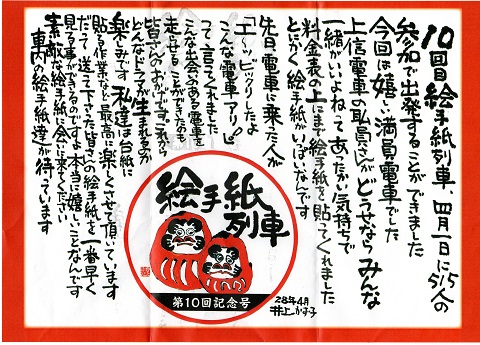 10回目絵手紙列車、四月一日に515人の
参加で出発することができました
今回は嬉しい満員電車でした
上信電車の私員さんがどうせならみんな
一緒がいいよねってあったかい気持ちで
料金表の上にまで絵手紙を貼ってくれました
とにかく絵手紙がいっぱいなんです
先日電車に乗った人が
「エーッビックリしたよ
こんな電車アリ!!」
って言ってくれました
こんな出会いがある電車を
走らせることができたのも
皆さんのおかげですこれから
どんなドラマが生まれるのか
楽しみです 私達は台紙に
貼る作業など最高に楽しくさせて頂いています
だって送って下さった皆さんの絵手紙を一番早く
見る事ができるのですよ本当に嬉しいことなんです
素敵な絵手紙に会いに来てください
車内の絵手紙達が待っています
絵手紙
列車
第10回記念号
28年4月